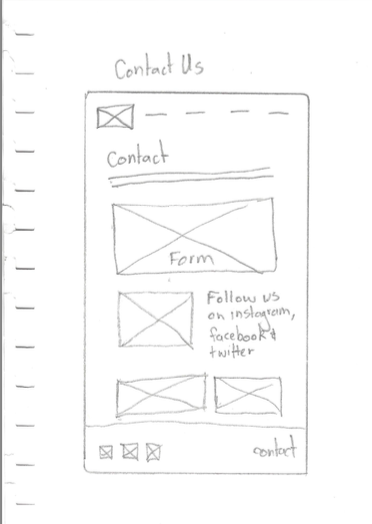 Contact Us
Contact
Form
Follow us
on instagram,
facebook &
twitter
contact